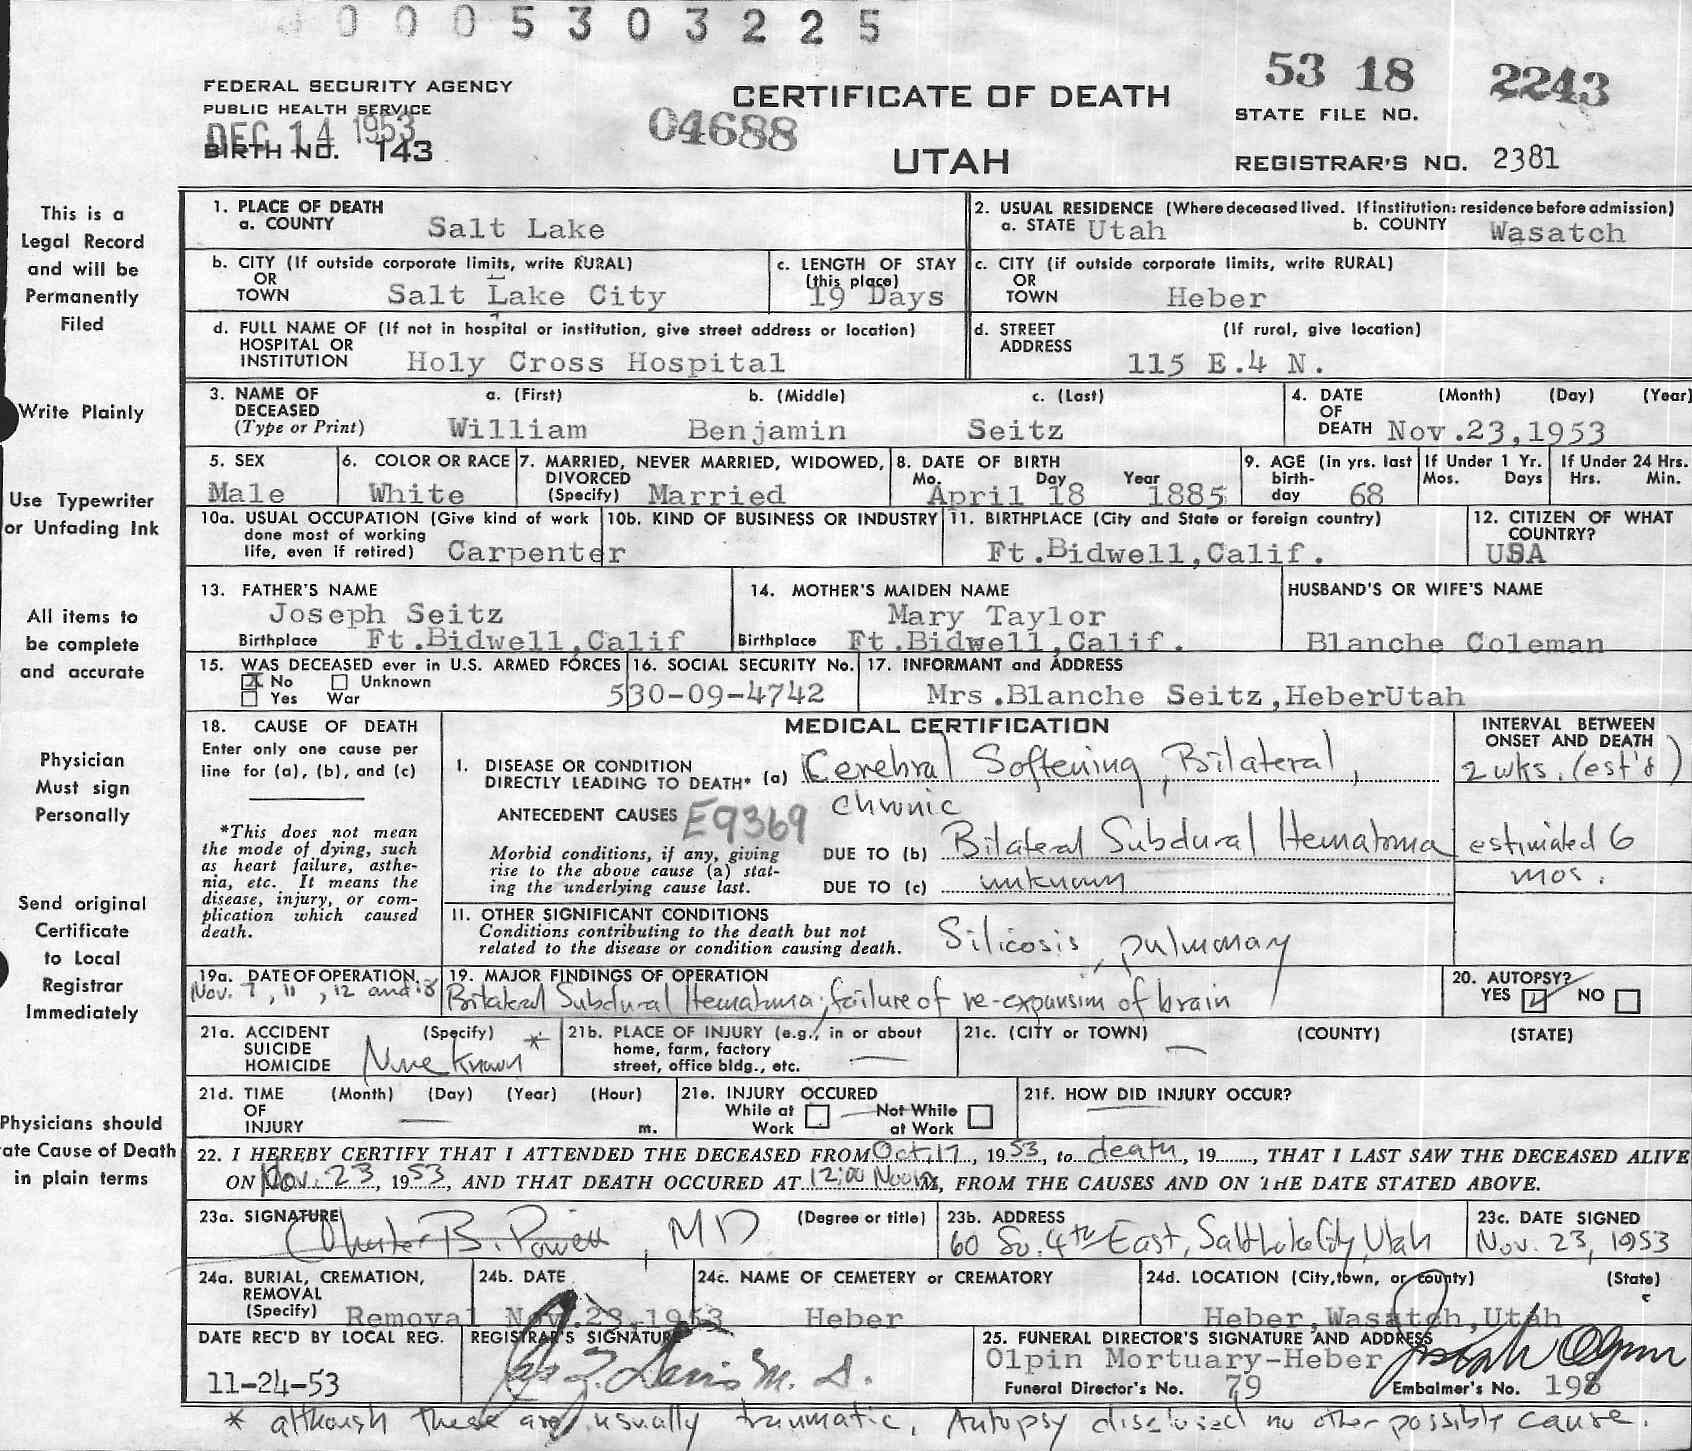 0005303225
FEDERAL SECURITY AGENCY
PUBLIC HEALTH SERVICE
DEC 14 1953
BIRTH NO. 143
04688
CERTIFICATE OF DEATH
UTAH
53 18 2243
STATE FILE NO.
REGISTRAR'S NO. 2381
This is a
Legal Record
and will be
Permanently
Filed
Write Plainly
Use Typewriter
or Unfading Ink
All items to
be complete
and accurate
Physician
Must sign
Personally
Send original
Certificate
to Local
Registrar
Immediately
Physicians should
ate Cause of Death
in plain terms
1. PLACE OF DEATH
a. COUNTY Salt Lake
2. USUAL RESIDENCE (Where deceased lived. If institution: residence before admission)
a. STATE Utah b. COUNTY Wasatch
b. CITY (If outside corporate limits, write RURAL)
OR
TOWN Salt Lake City
c. LENGTH OF STAY
(this place)
19 Days
c. CITY (if outside corporate limits, write RURAL)
OR
TOWN Heber
d. FULL NAME OF (If not in hospital or institution, give street address or location)
HOSPITAL OR
INSTITUTION Holy Cross Hospital
d. STREET (If rural, give location)
ADDRESS 115 E.4 N.
3. NAME OF a. (First) b. (Middle) c. (Last)
DECEASED
(Type or Print) William Benjamin Seitz
4. DATE (Month) (Day) (Year)
OF
DEATH Nov.23,1953
5. SEX
Male
6. COLOR OR RACE
White
7. MARRIED, NEVER MARRIED, WIDOWED,
DIVORCED
(Specify) Married
8. DATE OF BIRTH
Mo. Day Year
April 18 1885
9. AGE (in yrs. last
birth-
day 68
If Under 1 Yr.
Mos. Days
If Under 24 Hrs.
Hrs. Min.
10a. USUAL OCCUPATION (Give kind of work
done most of working
life, even if retired) Carpenter
10b. KIND OF BUSINESS OR INDUSTRY
11. BIRTHPLACE (City and State or foreign country)
Ft.Bidwell,Calif.
12. CITIZEN OF WHAT
COUNTRY?
USA
13. FATHER'S NAME
Joseph Seitz
Birthplace Ft.Bidwell,Calif
14. MOTHER'S MAIDEN NAME
Mary Taylor
Birthplace Ft.Bidwell,Calif.
HUSBAND'S OR WIFE'S NAME
Blanche Coleman
15. WAS DECEASED ever in U.S. ARMED FORCES
X No Unknown
Yes War
16. SOCIAL SECURITY No.
530-09-4742
17. INFORMANT and ADDRESS
Mrs.Blanche Seitz,HeberUtah
18. CAUSE OF DEATH
Enter only one cause per
line for (a), (b), and (c)
*This does not mean
the mode of dying, such
as heart failure, asthe-
nia, etc. It means the
disease, injury, or com-
plication which caused
death.
MEDICAL CERTIFICATION
INTERVAL BETWEEN
ONSET AND DEATH
I. DISEASE OR CONDITION
DIRECTLY LEADING TO DEATH* (a) Cerebral Softening, Bilateral,
2 wks. (est'd)
ANTECEDENT CAUSES E9369 chronic
Morbid conditions, if any, giving
rise to the above cause (a) stat-
ing the underlying cause last.
DUE TO (b) Bilateral Subdural Hematoma
estimated 6
mos.
DUE TO (c) unknown
II. OTHER SIGNIFICANT CONDITIONS
Conditions contributing to the death but not
related to the disease or condition causing death.
Silicosis, pulmonary
19a. DATE OF OPERATION
Nov. 7, 11, 12 and 18
19. MAJOR FINDINGS OF OPERATION
Bilateral Subdural Hematoma; failure of re-expansion of brain
20. AUTOPSY?
YES NO
21a. ACCIDENT (Specify)
SUICIDE
HOMICIDE None Known *
21b. PLACE OF INJURY (e.g., in or about
home, farm, factory
street, office bldg., etc.
21c. (CITY or TOWN) (COUNTY) (STATE)
21d. TIME (Month) (Day) (Year) (Hour)
OF
INJURY m.
21e. INJURY OCCURED
While at Work
Not While at Work
21f. HOW DID INJURY OCCUR?
22. I HEREBY CERTIFY THAT I ATTENDED THE DECEASED FROM Oct. 17, 1953, to death, 19...., THAT I LAST SAW THE DECEASED ALIVE
ON Nov. 23, 1953, AND THAT DEATH OCCURED AT 12:00 Noon M, FROM THE CAUSES AND ON THE DATE STATED ABOVE.
23a. SIGNATURE (Degree or title)
Chester B. Powell, MD
23b. ADDRESS
60 So. 4th East, Salt Lake City, Utah
23c. DATE SIGNED
Nov. 23, 1953
24a. BURIAL, CREMATION,
REMOVAL
(Specify) Removal
24b. DATE
Nov.28,1953
24c. NAME OF CEMETERY or CREMATORY
Heber
24d. LOCATION (City,town, or county) (State)
Heber,Wasatch,Utah
DATE REC'D BY LOCAL REG.
11-24-53
REGISTRAR'S SIGNATURE
M. D.
25. FUNERAL DIRECTOR'S SIGNATURE AND ADDRESS
Olpin Mortuary-Heber Joseph Olpin
Funeral Director's No. 79 Embalmer's No. 198
* although these are usually traumatic, Autopsy disclosed no other possible cause.